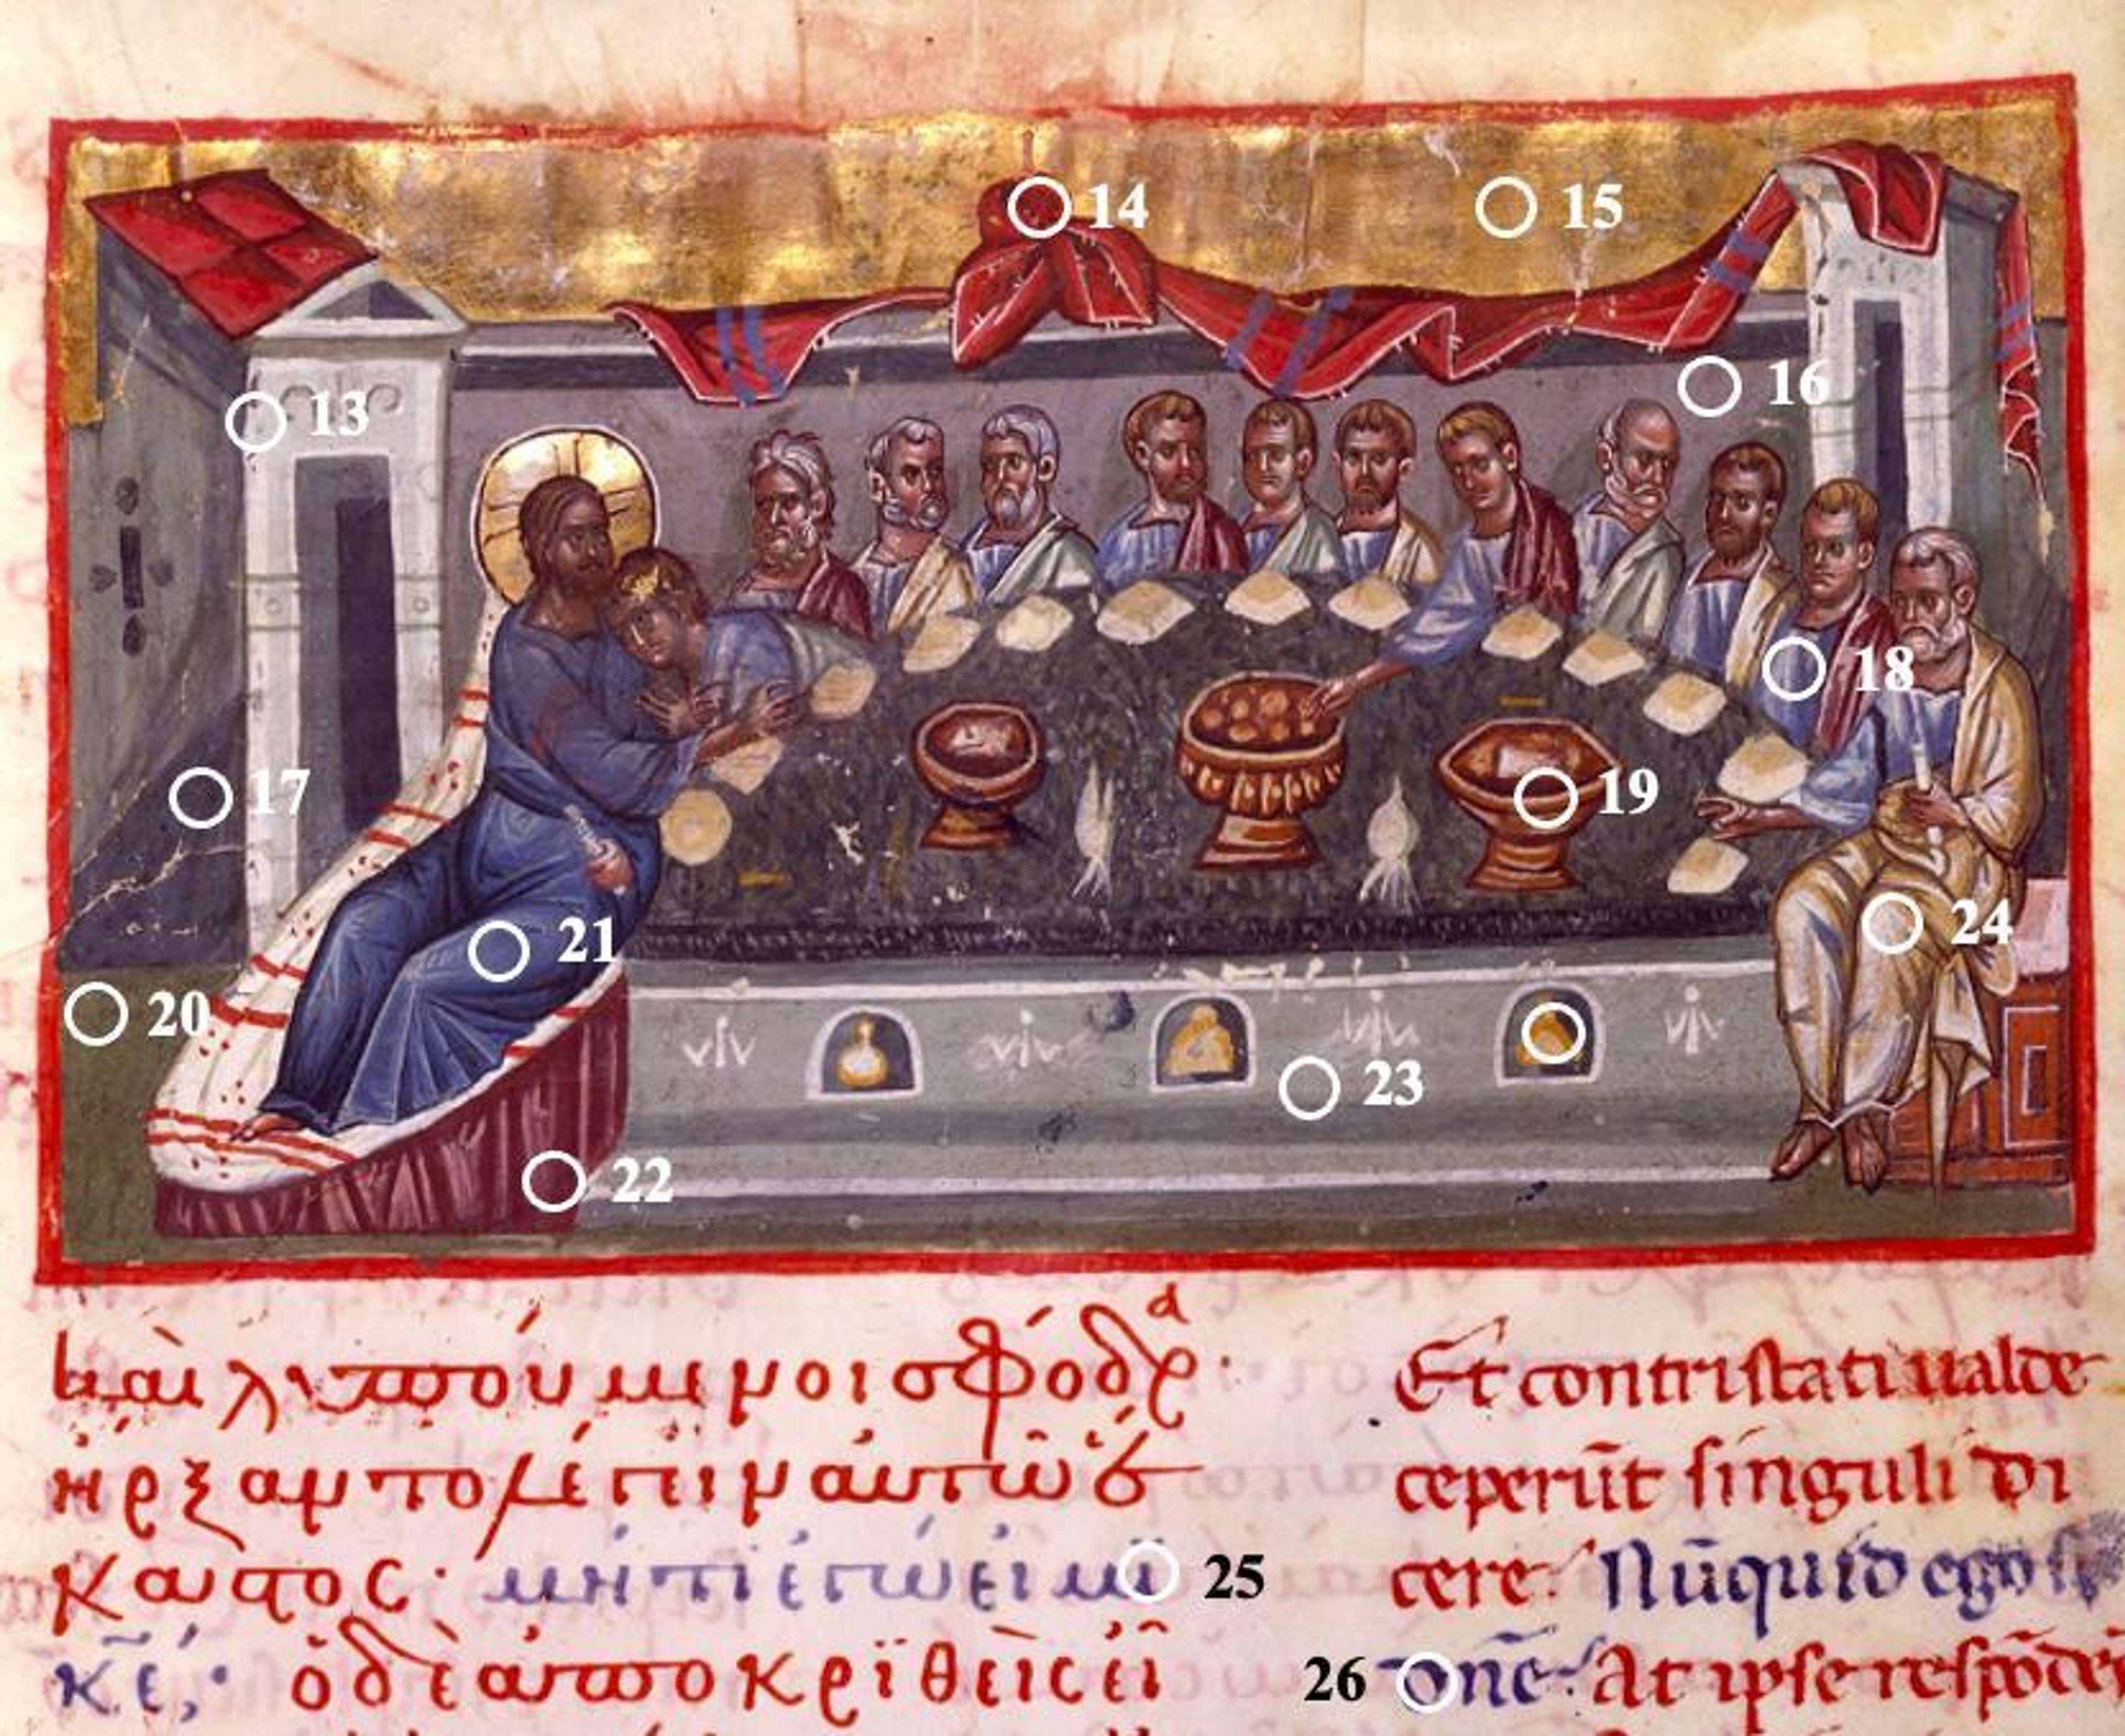 14
15
16
13
18
17
19
24
21
20
23
22
καὶ λυπούμενοι σφόδρα·
ἤρξαντο λέγειν αὐτῷ εἷς
ἕκαστος· μήτι ἐγώ εἰμι
25
κ̅ε̅,· ὁ δὲ ἀποκριθεὶς εἶ
Et contristati ualde
ceperūt singuli di
cere. Nūquid ego
26
dn̄e. At ipse respōdeṅ